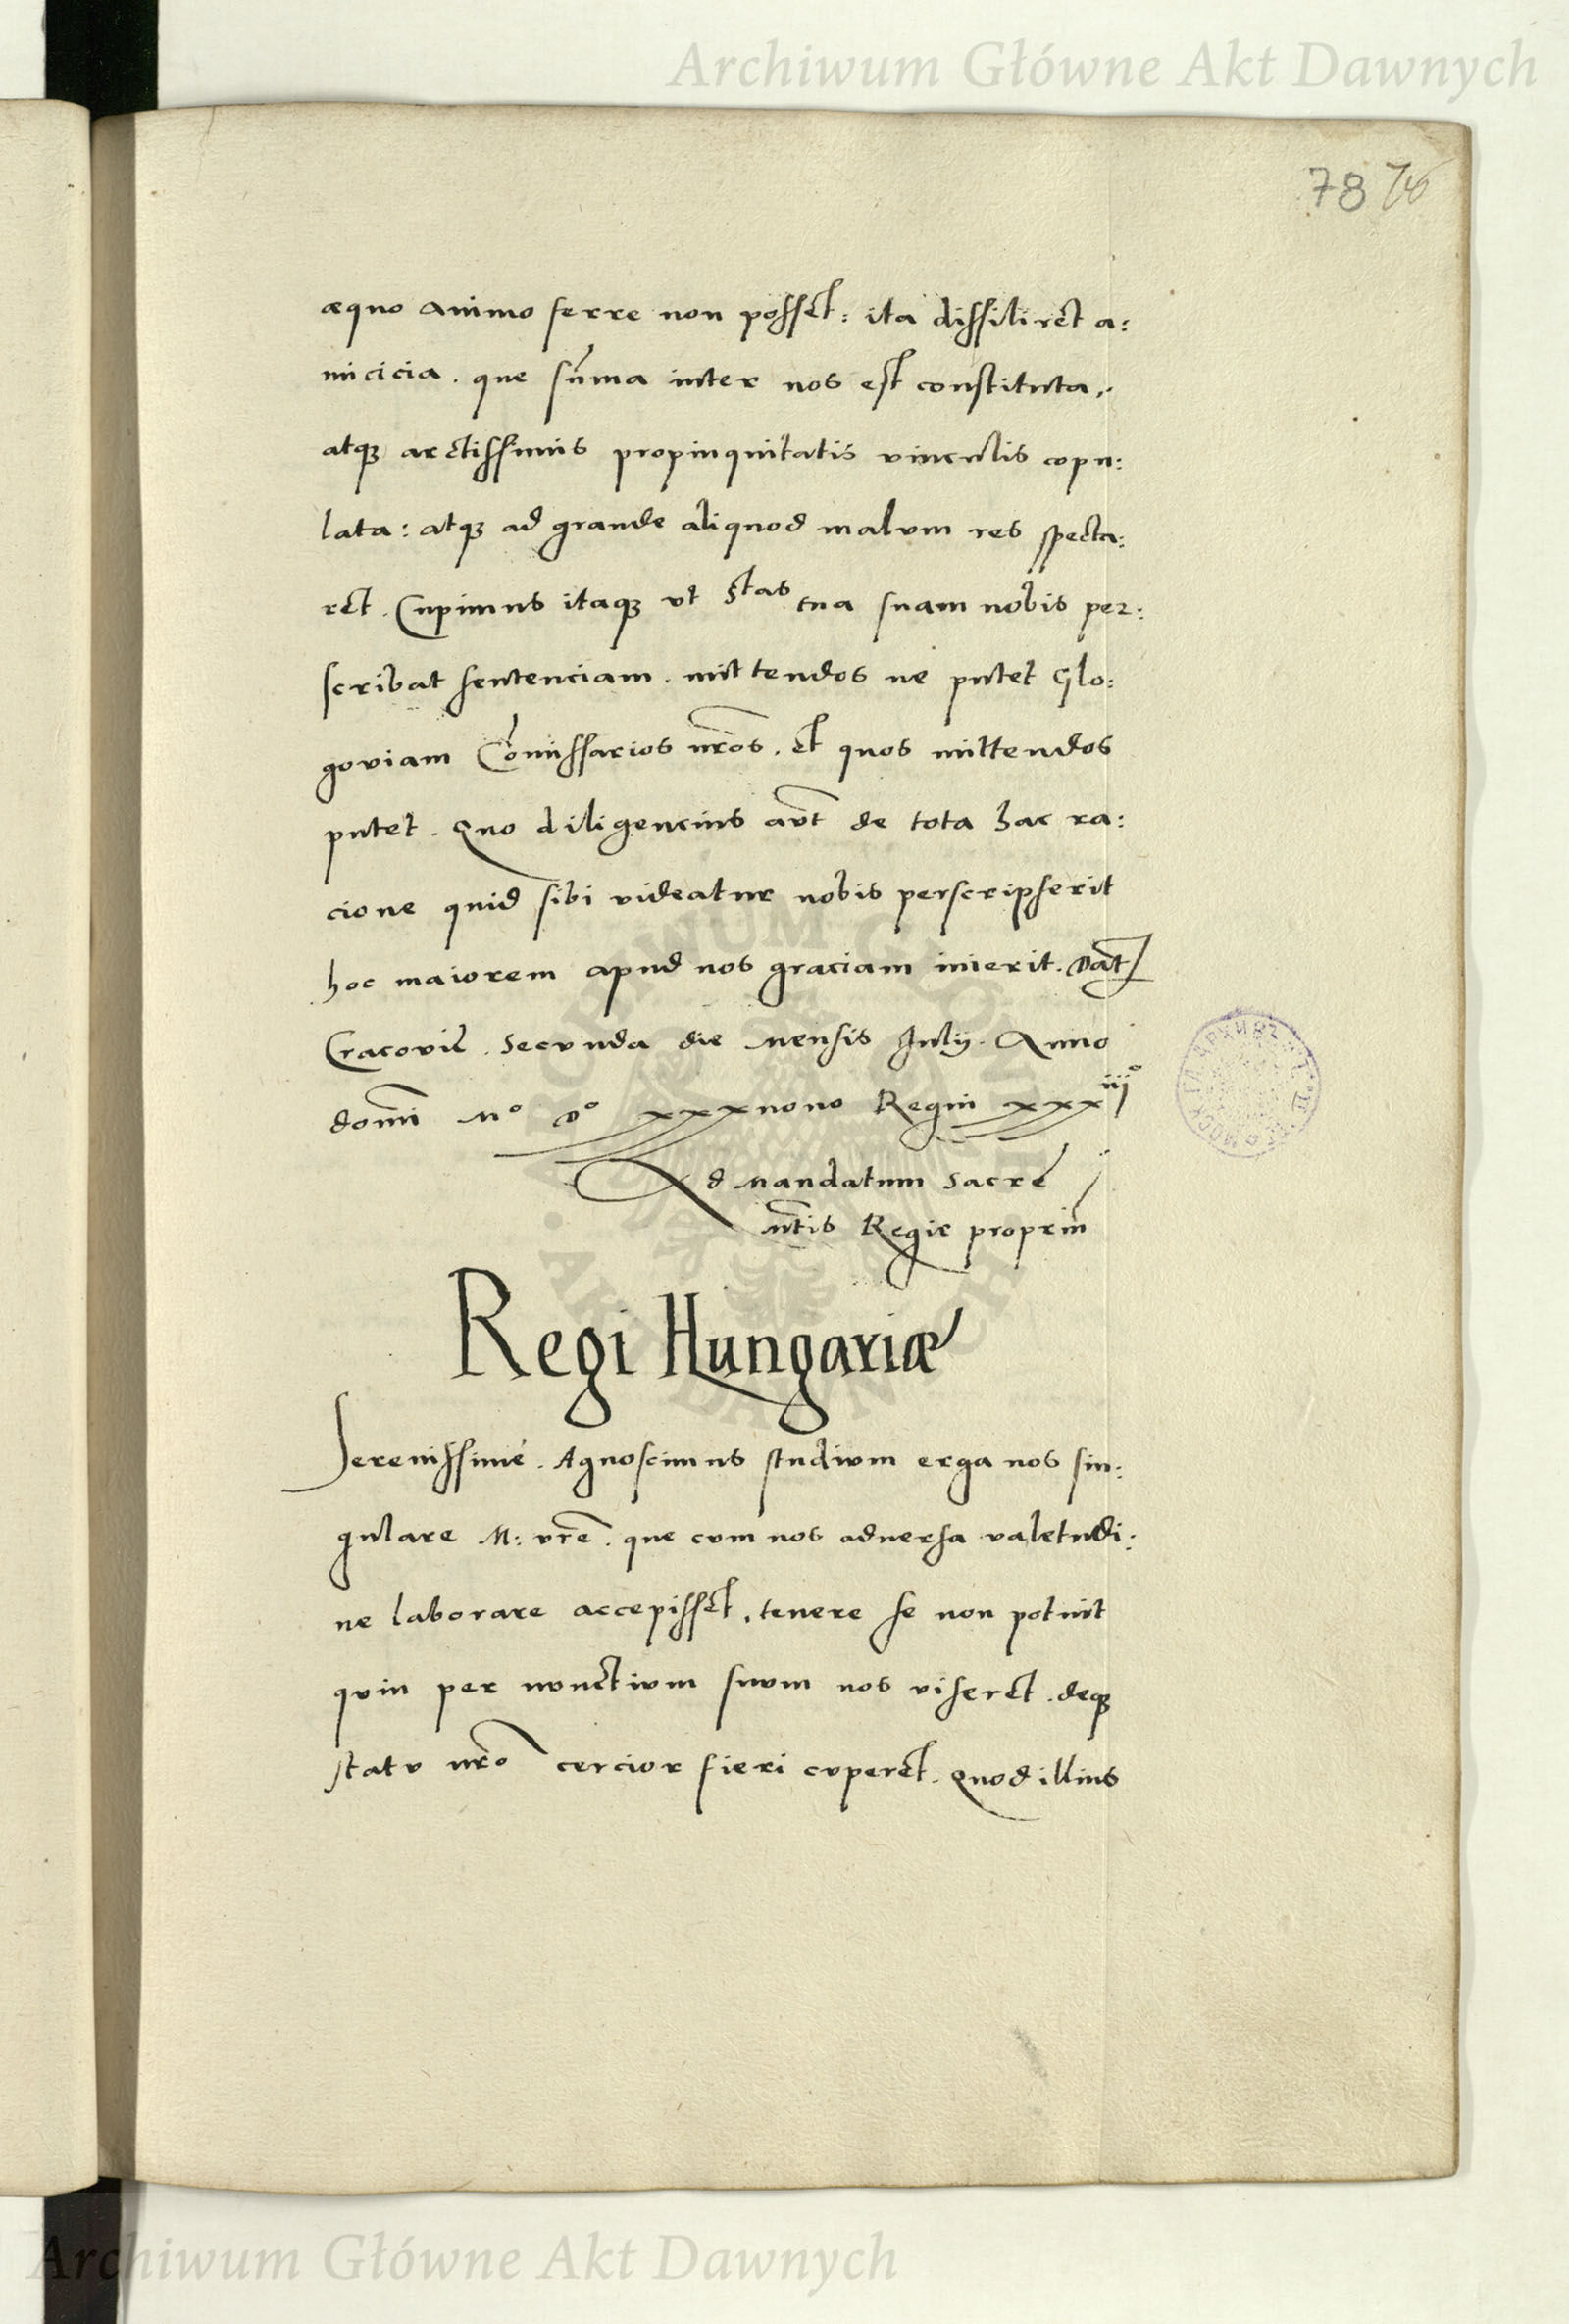 Archiwum Główne Akt Dawnych
78 76
æquo animo ferre non posset: ita dissiliret a:
micicia. que sũma inter nos est constituta,
atqꝫ arctissimis propinquitatis vinculis copu:
lata: atqꝫ ad grande aliquod malum res specta:
ret. Cupimus itaqꝫ vt Stas tua suam nobis per:
scribat sentenciam. mittendos ne putet Glo:
goviam Cõmissarios nr̃os. et quos mittendos
putet. Quo diligencius aũt de tota hac ra:
cione quid sibi videatur nobis perscripserit
hoc maiorem apud nos graciam inierit. Dat
Cracovie. Secunda die Mensis Julij. Anno
domĩ Mº Dº xxxnono Regni xxxiijº
Ad Mandatum Sacre
mt̃is Regie propriũ
Regi Hungariæ
Serenissime. Agnoscimus studium erga nos sin:
gulare M: vr̃e. que cum nos adversa valetudi:
ne laborare accepisset, tenere se non potuit
quin per nunctium suum nos viseret. deqꝫ
statu nr̃o cercior fieri cuperet. Quod illius
ARCHIWUM GŁÓWNE
AKT DAWNYCH
Archiwum Główne Akt Dawnych